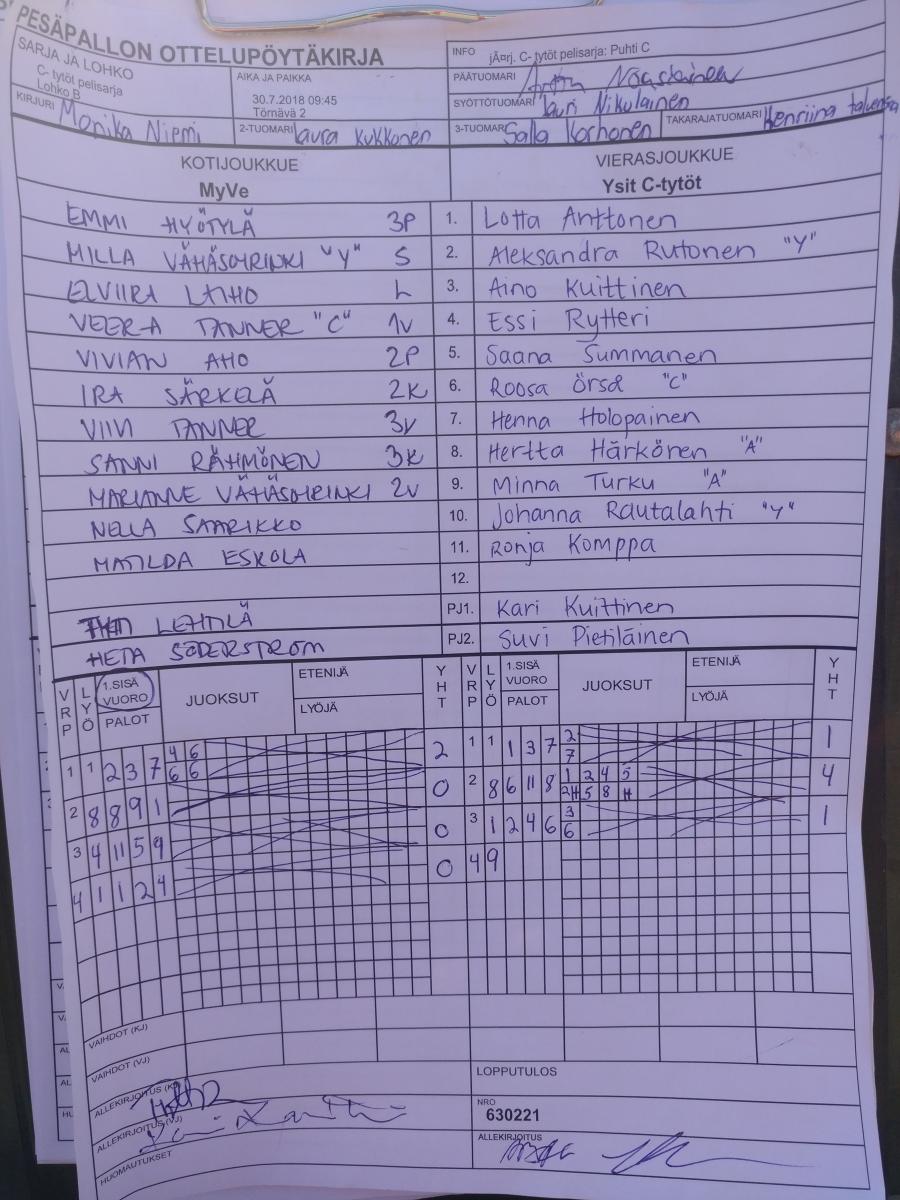 PESÄPALLON OTTELUPÖYTÄKIRJA
SARJA JA LOHKO
C- tytöt pelisarja
Lohko B
AIKA JA PAIKKA
30.7.2018 09:45
Törnävä 2
INFO jÃ¤rj. C- tytöt pelisarja: Puhti C
PÄÄTUOMARI
SYÖTTÖTUOMARI Lauri Nikulainen
KIRJURI Monika Niemi
2-TUOMARI Laura Kukkonen
3-TUOMARI Salla Korhonen
TAKARAJATUOMARI Henriina
KOTIJOUKKUE VIERASJOUKKUE
MyVe Ysit C-tytöt
EMMI HYÖTYLÄ 3P 1. Lotta Anttonen
MILLA VÄHÄSÖYRINKI "Y" S 2. Aleksandra Rutonen "Y"
ELVIIRA LAIHO L 3. Aino Kuittinen
VEERA TANNER "C" 1V 4. Essi Rytteri
VIVIAN AHO 2P 5. Saana Summanen
IRA SÄRKELÄ 2K 6. Roosa Örså "C"
VIIVI TANNER 3V 7. Henna Holopainen
SANNI RÄHMÖNEN 3K 8. Hertta Härkönen "A"
MARIANNE VÄHÄSÖYRINKI 2V 9. Minna Turku "A"
NELLA SAARIKKO 10. Johanna Rautalahti "Y"
MATILDA ESKOLA 11. Ronja Komppa
12.
LEHTILÄ PJ1. Kari Kuittinen
HETA SÖDERSTRÖM PJ2. Suvi Pietiläinen
VRP LYÖ 1.SISÄ VUORO PALOT JUOKSUT ETENIJÄ LYÖJÄ YHT VRP LYÖ 1.SISÄ VUORO PALOT JUOKSUT ETENIJÄ LYÖJÄ YHT
1 1 2 3 7 4 6 2 1 1 1 3 7 2 1
6 6 7
2 8 8 9 1 0 2 8 6 11 8 1 2 4 5 4
2H 5 8 H
3 4 11 5 9 0 3 1 2 4 6 3 1
6
4 1 1 2 4 0 4 9
VAIHDOT (KJ)
VAIHDOT (VJ)
ALLEKIRJOITUS (KJ)
LOPPUTULOS
ALLEKIRJOITUS (VJ)
NRO
630221
HUOMAUTUKSET
ALLEKIRJOITUS